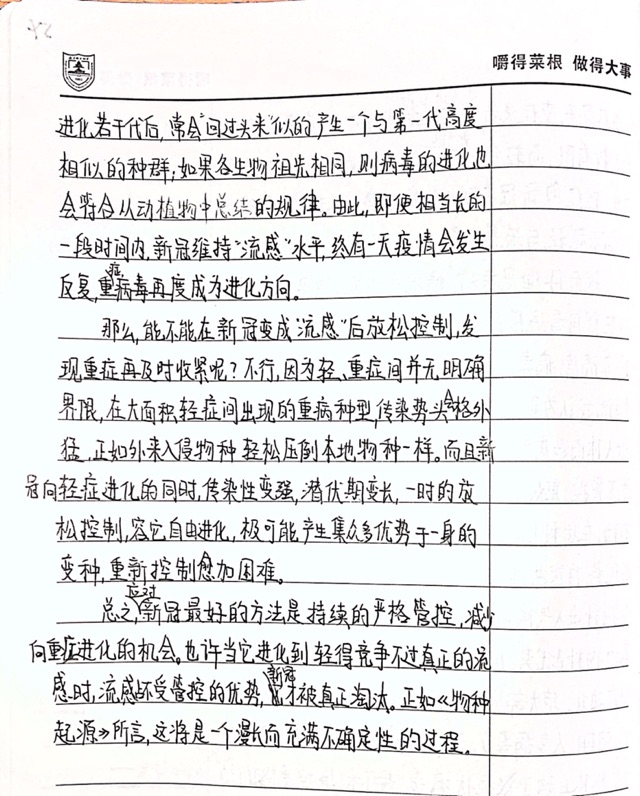 嚼得菜根 做得大事
进化若干代后,常会“回过头来”似的产生一个与第一代高度
相似的种群;如果各生物祖先相同,则病毒的进化也
会符合从动植物中总结的规律。由此,即便相当长的
一段时间内,新冠维持“流感”水平,终有一天疫情会发生
反复,重症病毒再度成为进化方向。
那么,能不能在新冠变成“流感”后放松控制,发
现重症再及时收紧呢?不行,因为轻、重症间并无明确
界限,在大面积轻症间出现的重病种型,传染势头会格外
猛,正如外来入侵物种轻松压倒本地物种一样。而且新
冠向轻症进化的同时,传染性变强,潜伏期变长,一时的放
松控制,容它自由进化,极可能产生集众多优势于一身的
变种,重新控制愈加困难。
总之,应对新冠最好的方法是持续的严格管控,减少
向重症进化的机会。也许当它进化到轻得竞争不过真正的流
感时,流感不受管控的优势,新冠才被真正淘汰。正如《物种
起源》所言,这将是一个漫长而充满不确定性的过程。